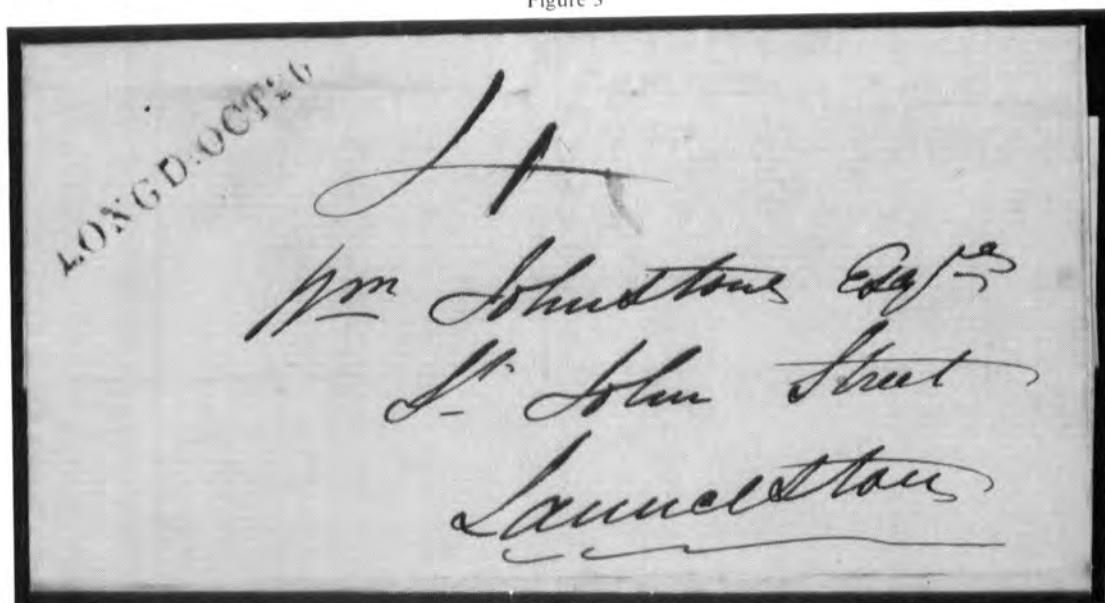 Figure 3
LONGD:OCT26
Wm Johnstone Esqre
St. John Street
Launceston